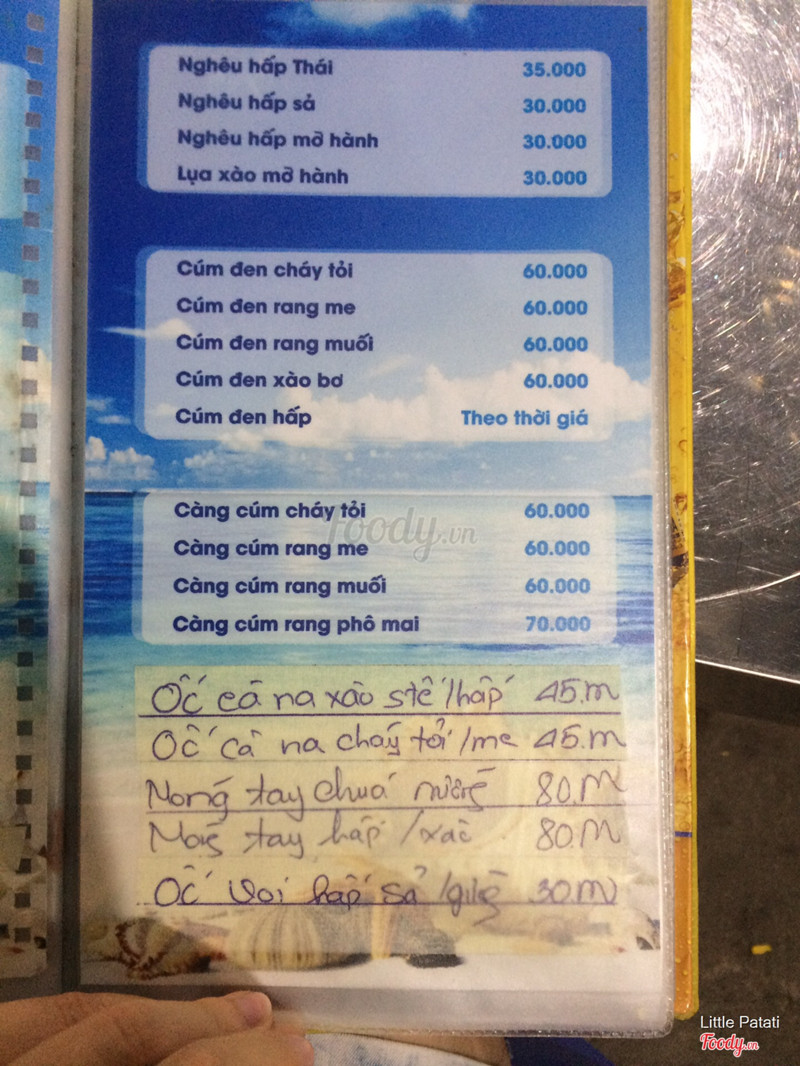 Nghêu hấp Thái 35.000
Nghêu hấp sả 30.000
Nghêu hấp mỡ hành 30.000
Lụa xào mỡ hành 30.000
Cúm đen cháy tỏi 60.000
Cúm đen rang me 60.000
Cúm đen rang muối 60.000
Cúm đen xào bơ 60.000
Cúm đen hấp Theo thời giá
Càng cúm cháy tỏi 60.000
Foody.vn
Càng cúm rang me 60.000
Càng cúm rang muối 60.000
Càng cúm rang phô mai 70.000
Ốc cà na xào stế /hấp 45.m
Ốc cà na cháy tỏi /me 45.m
Móng tay chuá nướng 80.M
Móng tay hấp /xào 80.M
Ốc voi hấp sả 30.m
Little Patati
Foody.vn